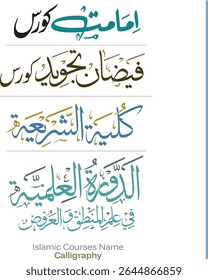 امامت کورس
فیضان تجوید کورس
كلية الشريعة
الدورة العلمية
في علم المنطق و العروض
Islamic Courses Name
Calligraphy
shutterstock.com · 2644866859